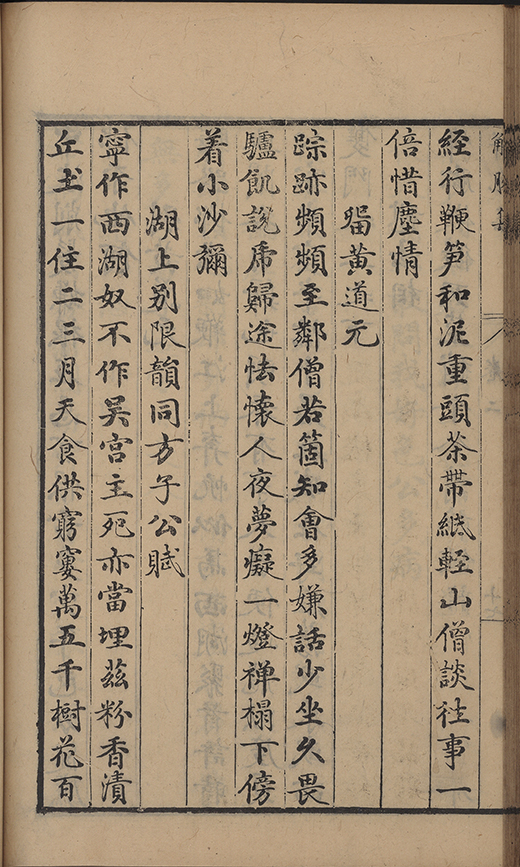 解脫集
卷二
經行鞭笋和泥重頭茶帶紙輕山僧談往事一
倍惜塵情
畱黃道元
踪跡頻頻至鄰僧若箇知會多嫌話少坐久畏
驢飢說虎歸途怯懷人夜夢癡一燈禅榻下傍
着小沙彌
湖上别限韻同方子公賦
寧作西湖奴不作吴宫主死亦當埋兹粉香漬
丘土一住二三月天食供窮寠萬五千樹花百